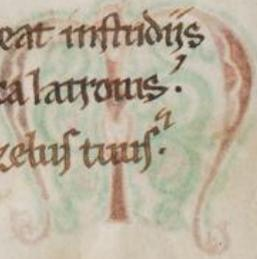 eat in studiis
ca latronis.
rebus tuis.